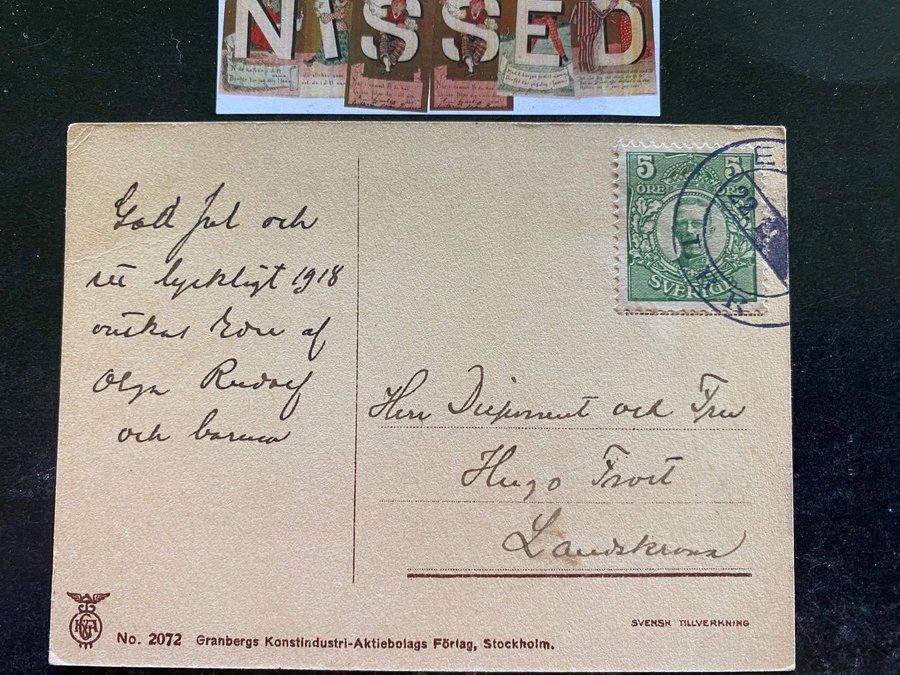 NISSED
God Jul och
ett lyckligt 1918
önskas Eder af
Olga Rudolf
och barnen
5 5
ÖRE ÖRE
SVERIGE
22
Herr Disponent och Fru
Hugo Frost
Landskrona
SVENSK TILLVERKNING
No. 2072 Granbergs Konstindustri-Aktiebolags Förlag, Stockholm.